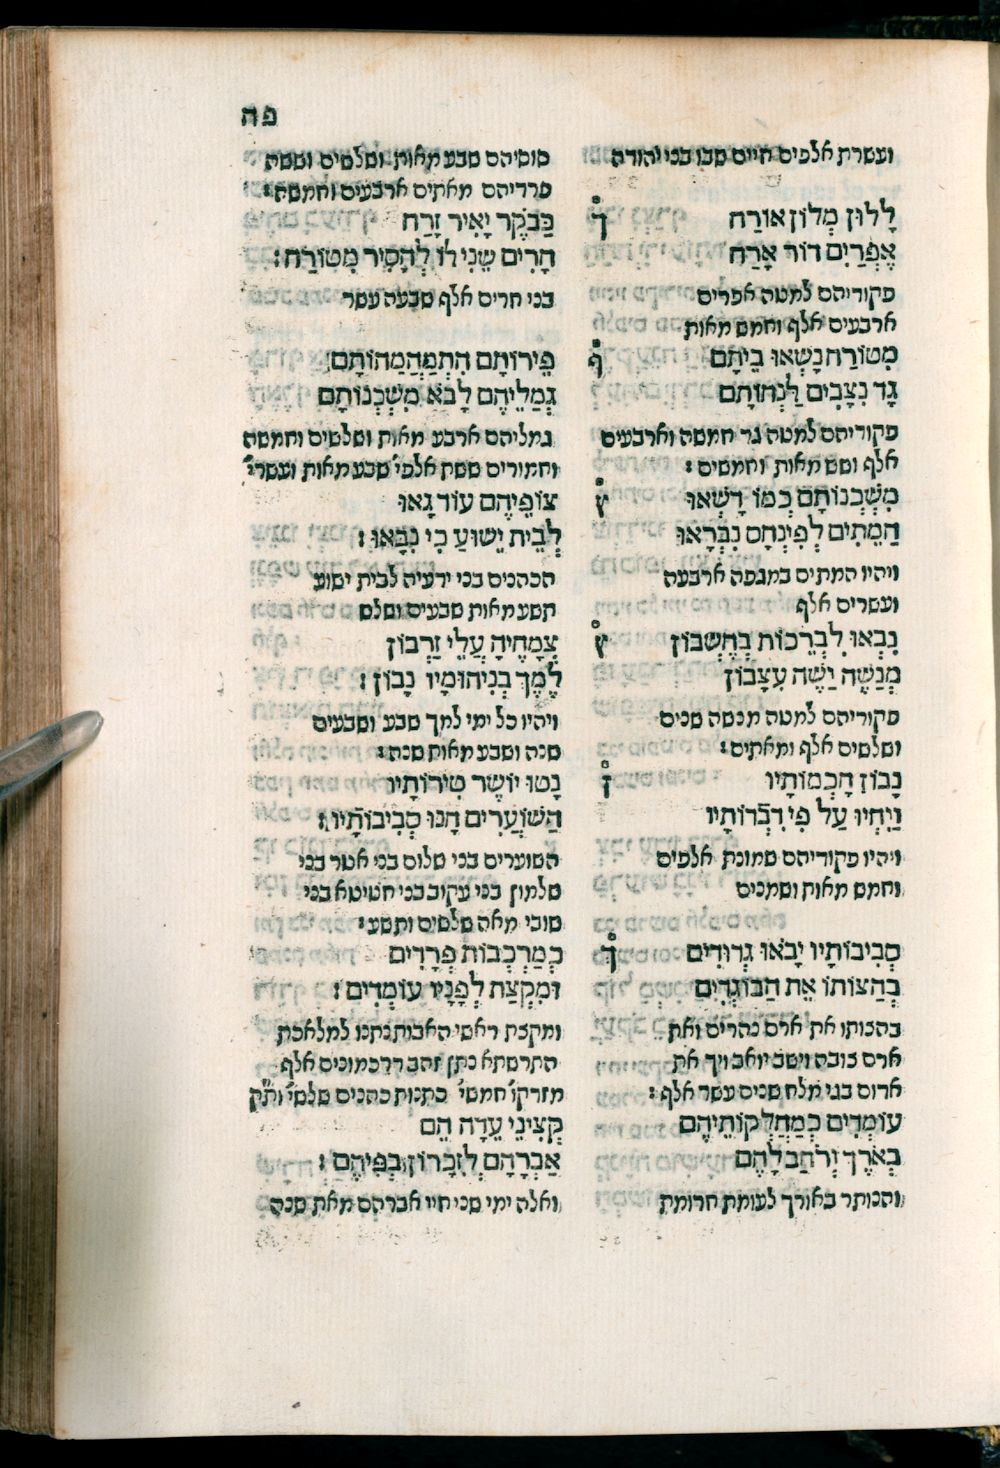 פה
ועשרת אלפים חיים שבו בני יהודה
ךֹ
לָלוּן מְלוֹן אוֹרַח
אֶפְרַיִם דּוֹר אָרַח
פקודיהם למטה אפרים
ארבעים אלף וחמש מאות
ףֹ
מִטּוֹרַח נָשְׂאוּ בֵיתָם
גָד נִצָבִים לַנְחוֹתָם
פקודיהם למטה גד חמשה וארבעים
אלף ושש מאות וחמשים :
ץֹ
מִשְׁכְּנוֹתָם כְּמוֹ דָשְׁאוּ
הַמֵתִים לְפִינְחָס נִבְרָאוּ
ויהיו המתים במגפה ארבעה
ועשרים אלף
ץֹ
נִבְאוּ לִבְרֵכוֹת בְחֶשְׁבּוֹן
מְנַשֶׁה יַשֶׁה עִצָבוֹן
פקודיהם למטה מנשה שנים
ושלשים אלף ומאתים :
ןֹ
נָבוֹן חָכְמוֹתָיו
וַיִחְיוּ עַל פִּי דִבְרוֹתָיו
ויהיו פקודיהם שמונת אלפים
וחמש מאות ושמנים
ךֹ
סְבִיבוֹתָיו יָבֹאוּ גְדוּדִים
בְהַצּוֹתוֹ אֵת הַבּוֹגְדִים
בהצותו את ארם נהרים ואת
ארם צובה וישב יואב ויך את
אדום בגי מלח שנים עשר אלף :
עוֹמְדִים כְּמַחֲלְקוֹתֵיהֶם
בְאֹרֶךְ וְלֹחַב לָהֶם
והנותר באורך לעומת תרומת
סוסיהם שבע מאות ושלשים וששה
פרדיהם מאתים ארבעים וחמשה :
כַּבֹקֶר יָאִיר זָרַח
חָרִים שֵׁנִי לוֹ לְהָסִיר מִטּוֹרַח :
בני חרים אלף שבעה עשר
פֵּירוֹתָם הִתְמַהְמַהוֹתָם
גְמַלֵיהֶם לָבֹא מִשְׁכְּנוֹתָם
גמליהם ארבע מאות ושלשים וחמשה
וחמורים ששת אלפי' שבע מאות ועשרי'
צוֹפֵיהֶם עוֹד גָאוּ
לְבֵית יֵשׁוּעַ כִּי נִבָּאוּ :
הכהנים בני ידעיה לבית ישוע
תשע מאות שבעים ושלש
צְמָחֶיהָ עֲלֵי זַרְבוֹן
לֶמֶךְ בְּנִיהוּמָיו נָבוֹן :
ויהיו כל ימי למך שבע ושבעים
שנה ושבע מאות שנה :
נָטוּ יוֹשֶׁר טִירוֹתָיו
הַשׁוֹעֲרִים חָנוּ סְבִיבוֹתָיו :
השוערים בני שלום בני אטר בני
טלמון בני עקוב בני חטיטא בני
שובי מאה שלשים ותשע :
כְּמַרְכְּבוֹת פְּרָדִים
וּמִקְצַת לְפָנָיו עוֹמְדִים :
ומקצת ראשי האבות נתנו למלאכת
התרשתא נתן זהב דרכמונים אלף
מזרקו' חמשי' כתנות כהנים שלשי' ות"ק
קְצִינֵי עֵדָה הֵם
אַבְרָהָם לְזִכָּרוֹן בְּפִיהֶם :
ואלה ימי שני חיי אברהם מאת שנה